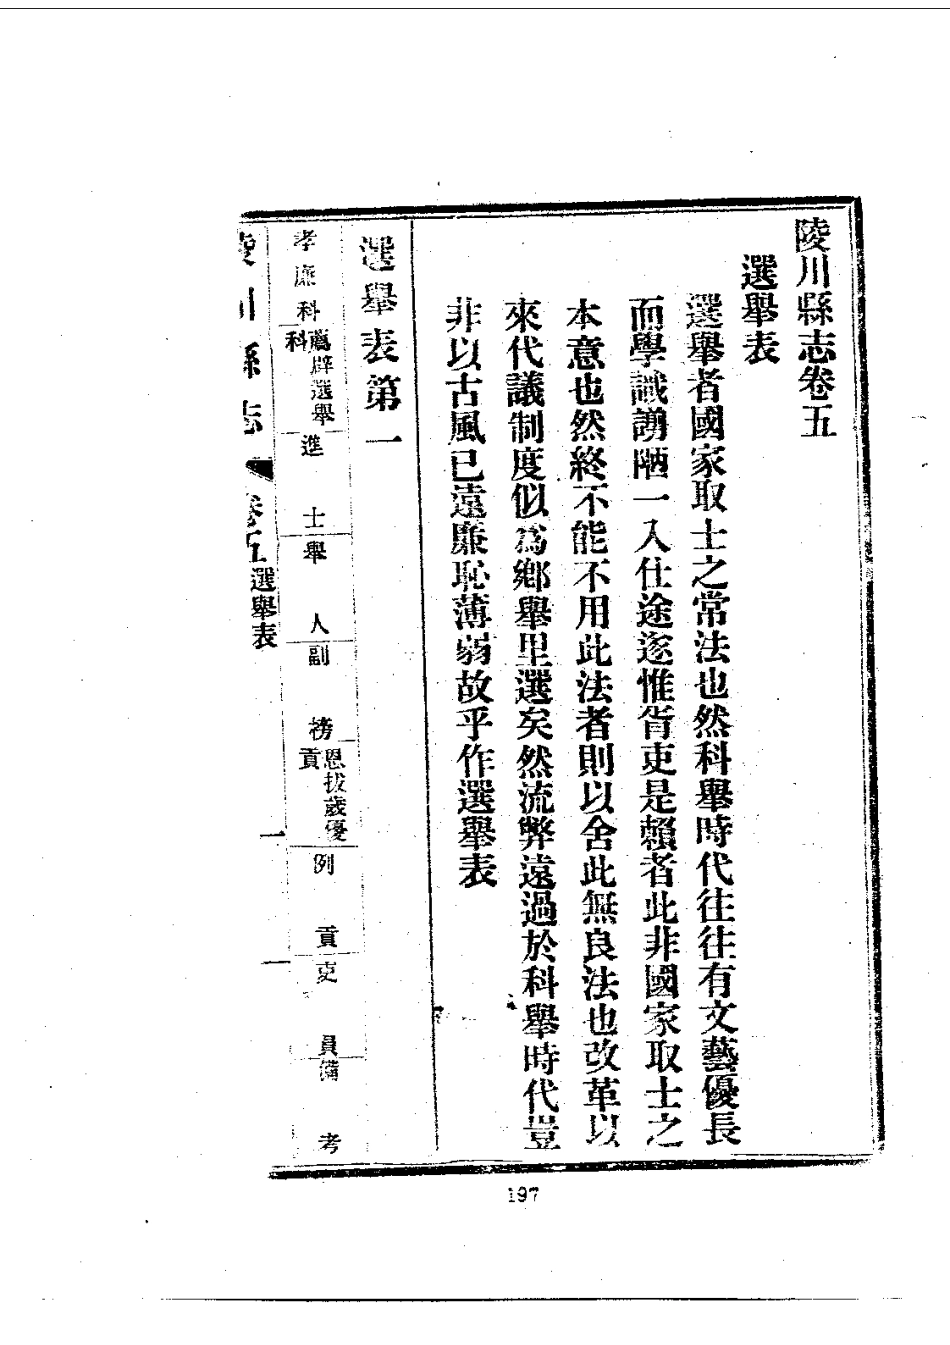 陵川縣志卷五
選舉表
選舉者國家取士之常法也然科舉時代往往有文藝優長
而學識謭陋一入仕途逐惟胥吏是賴者此非國家取士之
本意也然終不能不用此法者則以舍此無良法也改革以
來代議制度似爲鄉舉里選矣然流弊遠過於科舉時代豈
非以古風已遠廉恥薄弱故乎作選舉表
選舉表第一
孝廉科
薦辟選舉科
進士
舉人
副榜
恩拔歲優貢
例貢
吏員
備考
陵川縣志 卷五 選舉表 一
197